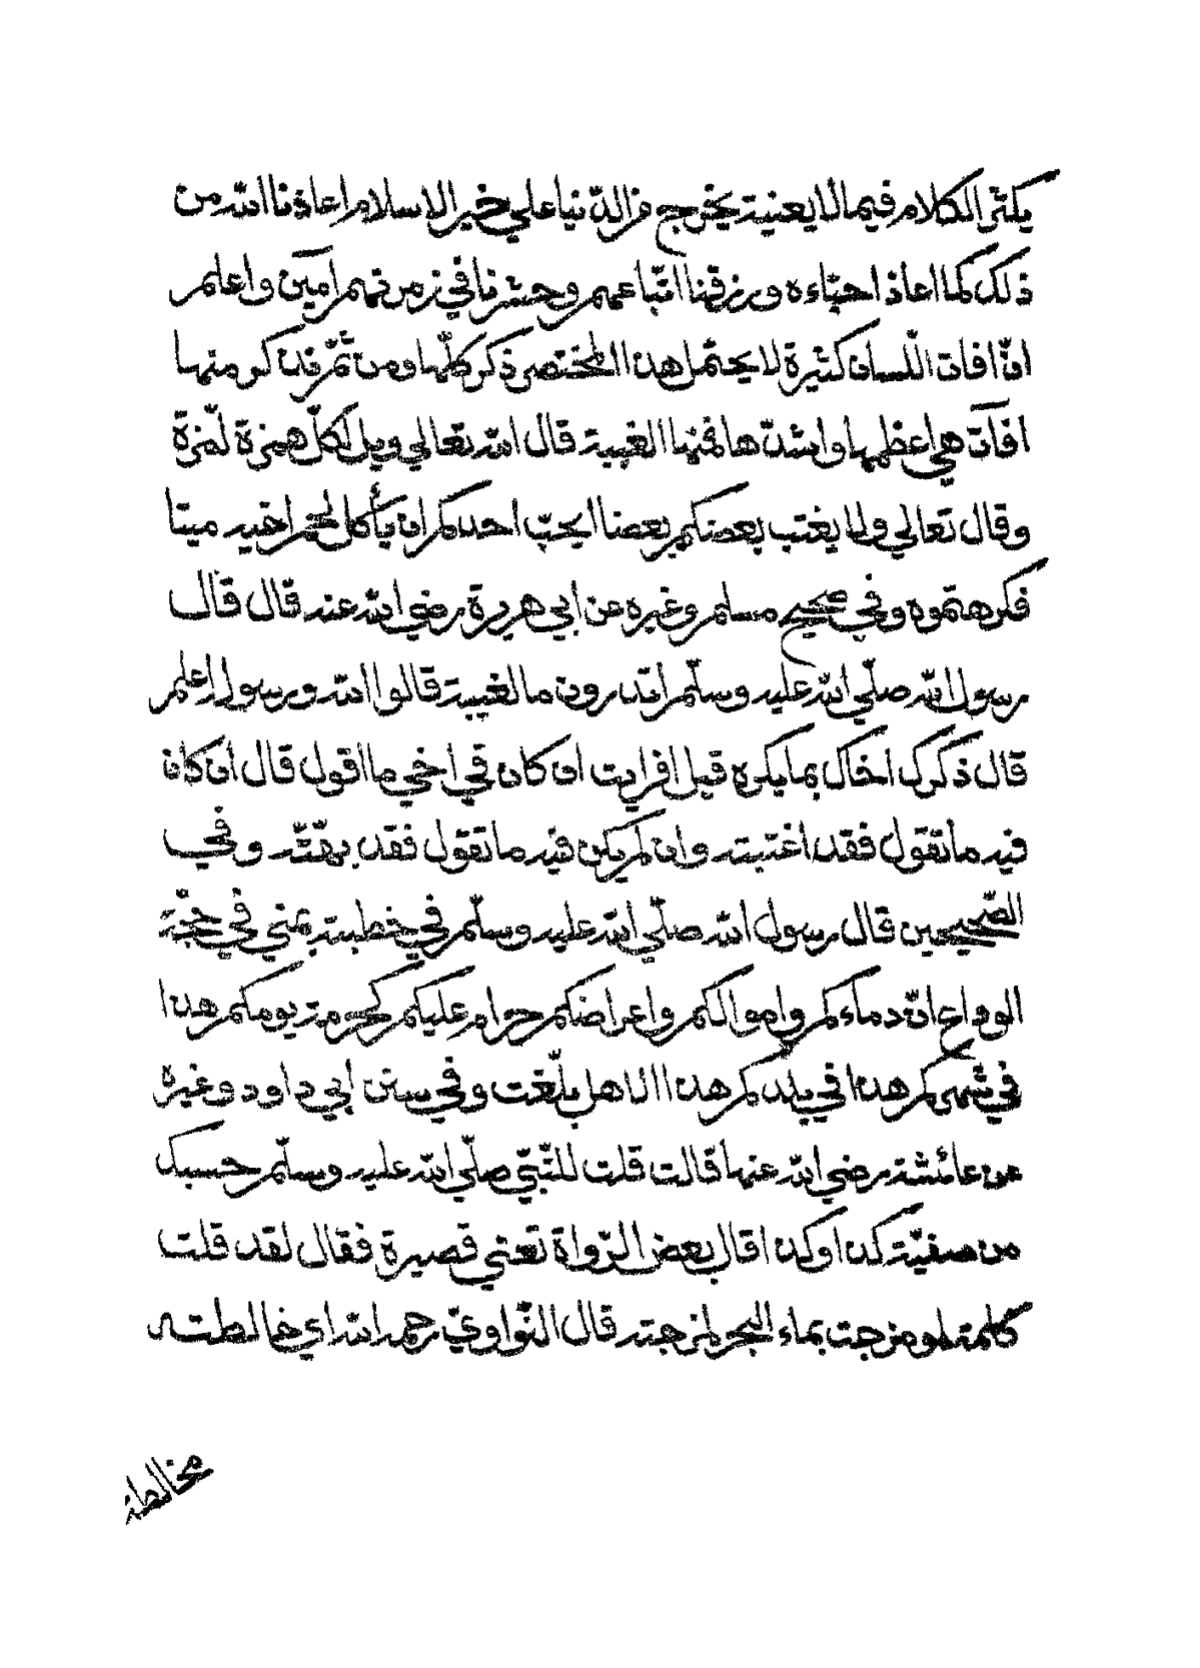 يكثر الكلام فيما لا يعنيه يخرج من الدّنيا علي خير الاسلام اعاذنا الله من
ذلك كما اعاذ احبّاءه ورزقنا اتّباعهم وحشرنا في زمرتهم آمين واعلم
انّ افات اللّسان كثيرة لا يحتمل هذا المختصر ذكر كلّها ومن ثمّ نذكر منها
افآت هي اعظمها واشدّها فمنها الغيبة قال الله تعالي ويل لكلّ همزة لّمزة
وقال تعالي ولا يغتب بعضكم بعضا ايحبّ احدكم ان يأكل لحم اخيه ميتا
فكرهتموه وفي صحيح مسلم وغيره عن ابي هريرة رضي الله عنه قال قال
رسول الله صلّي الله عليه وسلّم اتدرون ما لغيبة قالوا الله ورسوله اعلم
قال ذكرك اخاك بما يكره قيل افرايت ان كان في اخي ما اقول قال ان كان
فيه ما تقول فقد اغتبته وان لم يكن فيه ما تقول فقد بهتّه وفي
الصّحيحين قال رسول الله صلّي الله عليه وسلّم في خطبته بمني في حجّة
الوداع انّ دماءكم واموالكم واعراضكم حرام عليكم كحرمة يومكم هذا
في شهركم هذا في بلدكم هذا الا هل بلّغت وفي سنن ابي داود وغيره
عن عائشة رضي الله عنها قالت قلت للنّبيّ صلّي الله عليه وسلّم حسبك
من صفيّة كذا وكذا قال بعض الرّواة تعني قصيرة فقال لقد قلت
كلمة لو مزجت بماء البحر لمزجته قال النّواويّ رحمه الله اي خالطته
مخالطة